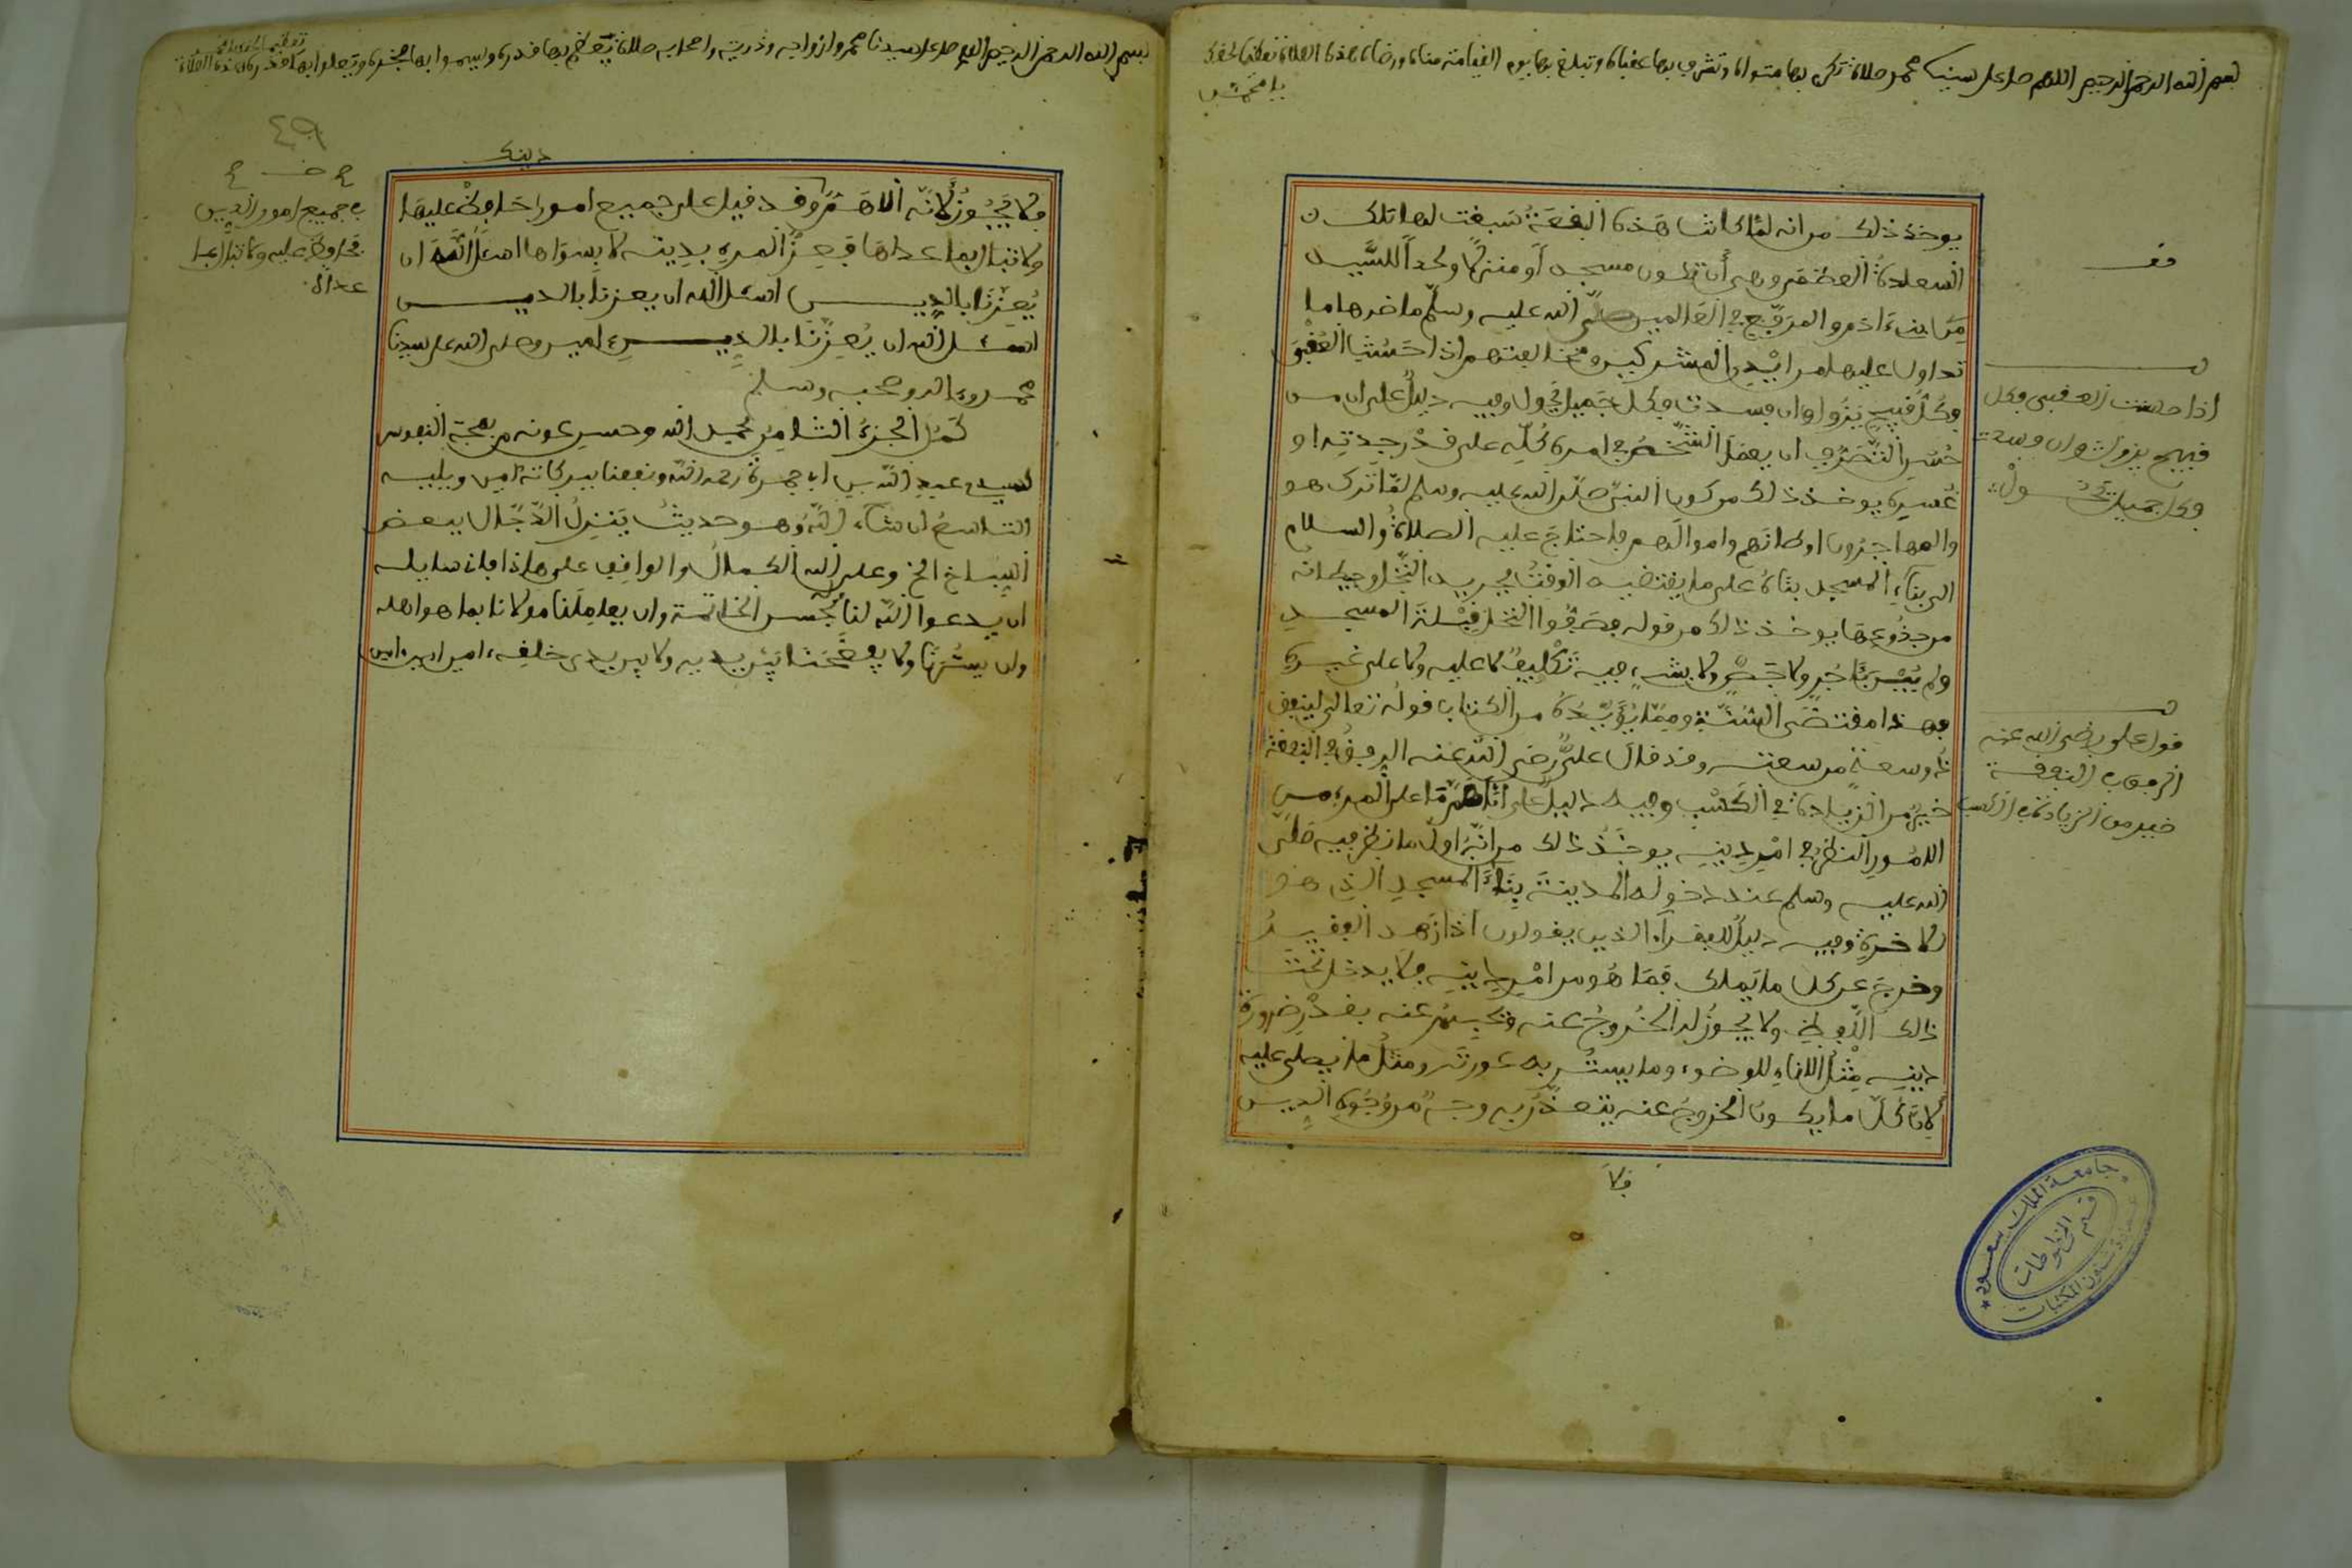 بسم الله الرحمن الرحيم اللهم صل على سيدنا محمد صلاة تكرم بها مثواه وتشرف بها عقباه وتبلغ بها يوم القيامة مناه ورضاه هذه الصلاة تعظيما لحقك
يا محمد
يوخذ ذلك من انه لما كانت هذه البقعة سبقت لها تلك
السعادة العظمى وهي أن تكون مسجدا ومنزلا ولحدا للسيد
من ابناء ادم والمرفع في العالمين صلى الله عليه وسلم ما ضرها ما
تداول عليها من ايدي المشركين ومخالفتهم اذا حسنت العقبى
فكل قبيح يزول وان فسدت فكل جميل يحول وفيه دليل على ان من
حسن التصرف ان يعمل الشخص في امره كله على قدر جدته او
عسره يوخذ ذلك من كون النبي صلى الله عليه وسلم لما ترك هو
والمهاجرون اوطانهم واموالهم فاحتاج عليه الصلاة والسلام
الى بناء المسجد بناه على ما يقتضيه الوقت بجريد النخل وحيطانه
من جذوعها يوخذ ذلك من قوله فصفوا النخل قبلة المسجد
ولم يبن بآجر ولا جص ولا بشيء فيه تكليف لا عليه ولا على غيره
فهذا مقتضى السنة ومما يؤيده من الكتاب قوله تعالى لينفق
ذو سعة من سعته وقد قال علي رضي الله عنه الرفق في النفقة
خير من الزيادة في الكسب وفيه دليل على ان اهم ما على المرء من
الامور النظر في امر دينه يوخذ ذلك من انه اول ما نظر فيه صلى
الله عليه وسلم عند دخوله المدينة بناء المسجد الذي هو
للاخرة وفيه دليل للفقراء الذين يقولون اذا زهد الفقير
وخرج عن كل ما يملك فما هو من امر دينه فلا يدخل تحت
ذلك اللفظ ولا يجوز له الخروج عنه ويحبس عنه بقدر ضرورة
دينه مثل الاناء للوضوء وما يستر به عورته ومثل ما يصلي عليه
لان كل ما يكون الخروج عنه يتعذر به وجه من وجوه الدين
فلا
قف
اذا حسنت العقبى فكل
قبيح يزول وان فسدت
فكل جميل يحول
قول علي رضي الله عنه
الرفق في النفقة
خير من الزيادة في الكسب
جامعة الملك سعود
قسم المخطوطات
عمادة شئون المكتبات
بسم الله الرحمن الرحيم اللهم صل على سيدنا محمد وازواجه وذريته واصحابه صلاة
٤٩
دينك
فلا يجوز لانه الاهم وقد قيل على جميع امورك حافظ عليها
ولا تبال بما عداها فعز المرء بدينه لا بسواها اسئل الله ان
يعزنا بالدين اسئل الله ان يعزنا بالدين
اسئل الله ان يعزنا بالدين امين وصلى الله على سيدنا
محمد وءاله وصحبه وسلم
كمل الجزء الثامن بحمد الله وحسن عونه من بهجة النفوس
لسيدي عبد الله بن ابي جمرة رحمه الله ونفعنا ببركاته امين ويليه
التاسع ان شاء الله وهو حديث ينزل الدجال ببعض
السباخ الخ وعلى الله الكمال والواقف على هاذا فانه سايله
ان يدعو الله لنا بحسن الخاتمة وان يعاملنا مولانا بما هو اهله
وان يسترنا ولا يفضحنا بين يديه ولا بين يدي خلقه امين امين امين
في جميع امور الدين
فحافظ عليه ولا تبال بما
عداه